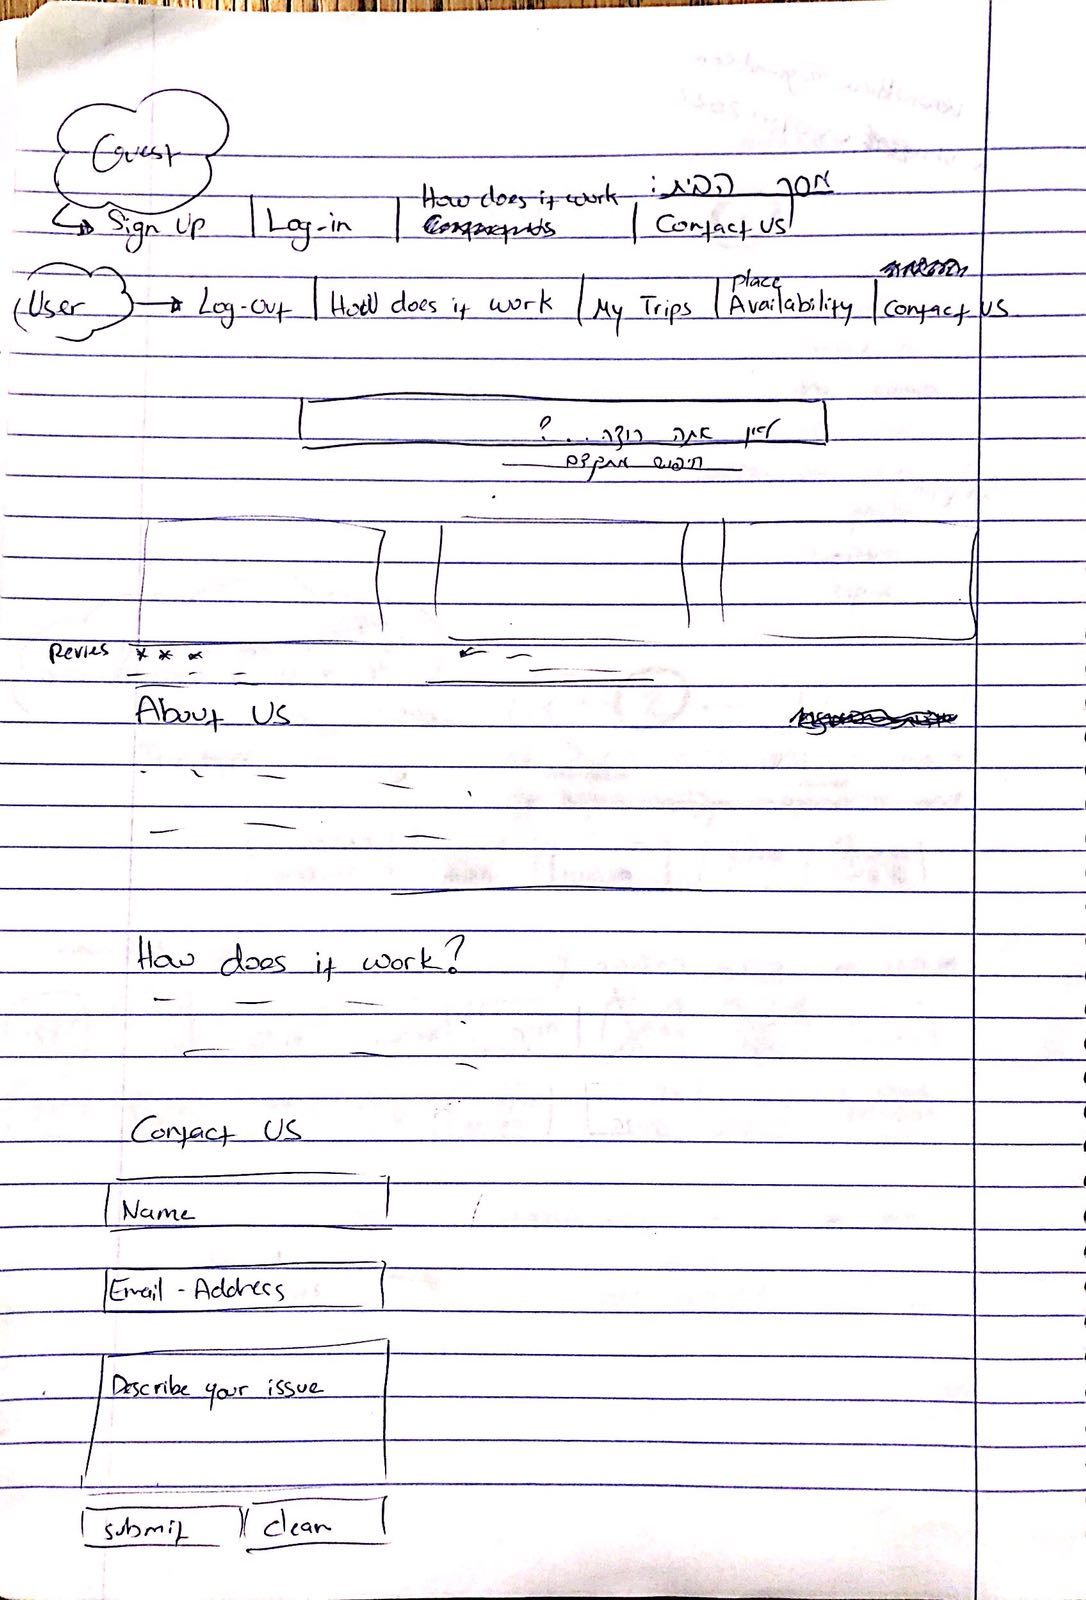 Guest
מסך הבית:
Sign Up | Log-in | How does it work | Contact US
User → Log-Out | How does it work | My Trips | place Availability | Contact US
לאן אתה רוצה...?
חיפוש מתקדם
Revies * * *
About US
How does it work?
Contact US
Name
Email - Address
Describe your issue
submit clean